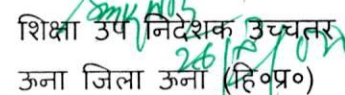 शिक्षा उप निदेशक उच्चतर
ऊना जिला ऊना (हि०प्र०)